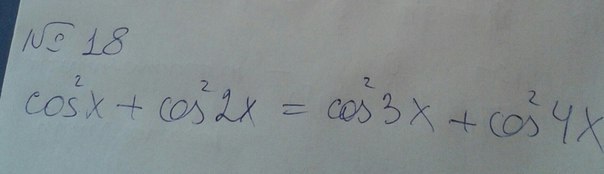 № 18
cos²x + cos²2x = cos²3x + cos²4x